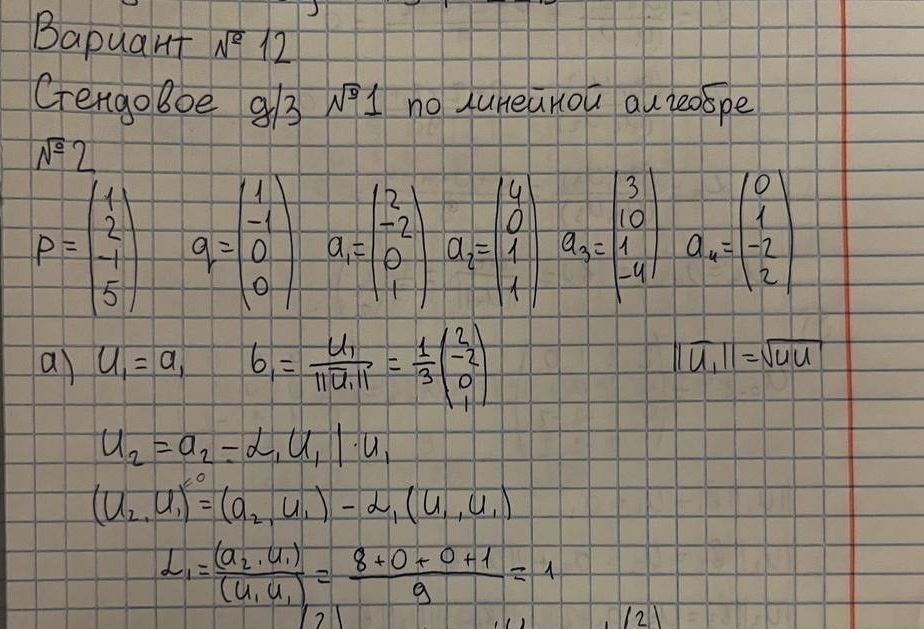 Вариант № 12
Стендовое д/з №1 по линейной алгебре
№2
p = (1 2 -1 5) q = (1 -1 0 0) a₁ = (2 -2 0 1) a₂ = (4 0 1 1) a₃ = (3 10 1 -4) a₄ = (0 1 -2 2)
а) u₁ = a₁ b₁ = u₁/||u₁|| = 1/3 (2 -2 0 1) ||u₁|| = √uu
u₂ = a₂ - α₁u₁ | · u₁
(u₂, u₁)⁼⁰ = (a₂, u₁) - α₁(u₁, u₁)
α₁ = (a₂, u₁)/(u₁ u₁) = 8+0+0+1/9 = 1